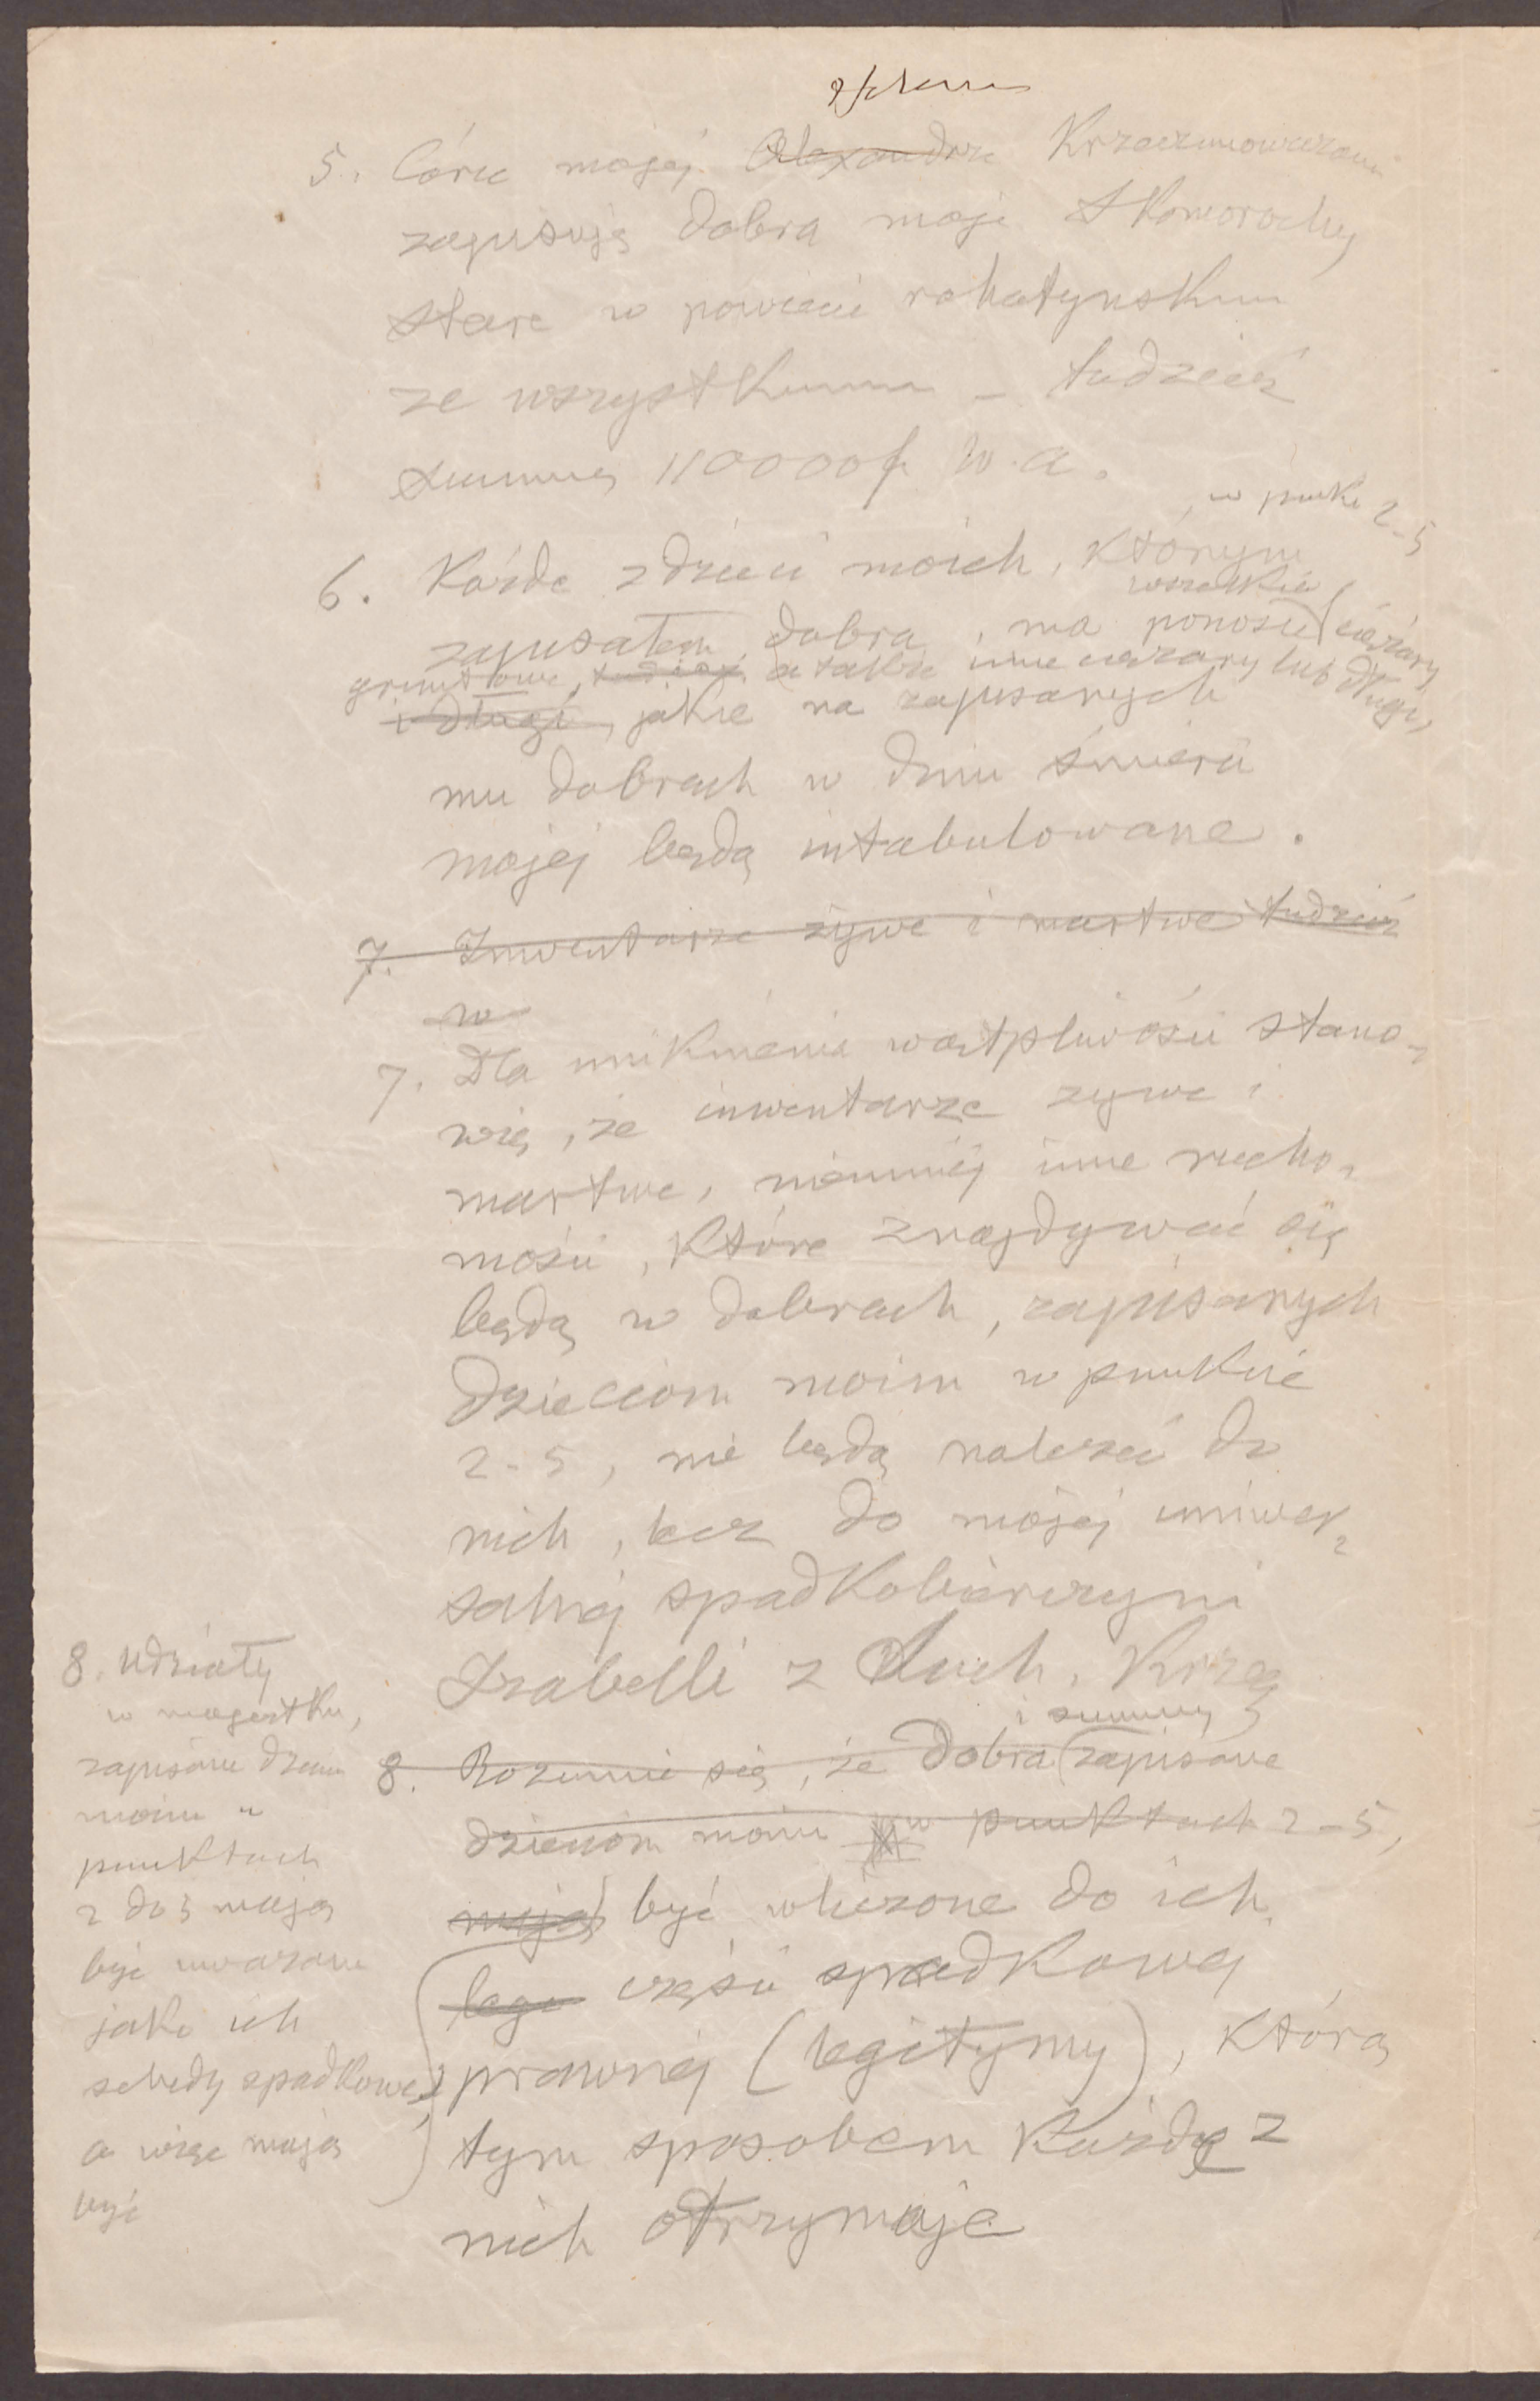 5. Córce mojej Alexandrze Krzeczunowiczowni
zapisuję dobra moje Skomorochy
stare w powiecie rohatynskim
ze wszystkiemi – tudzież
summę 110000 fr w. a.
w punkt 2-5
6. Każde z dzieci moich, którym
wszelkie
zapisałem dobra, ma ponosić ciężary
gruntowe, tudzież a także inne ciężary lub długi,
i długi, jakie na zapisanych
mu dobrach w dniu śmierci
mojej będą intabulowane.
7. Inwentarze żywe i martwe tudzież
w
7. Dla uniknienia wątpliwości stano-
wię, że inwentarze zywe i
martwe, niemniej inne rucho-
mości, które znajdywać się
będą w dobrach, zapisanych
dzieciom moim w punkcie
2-5, nie będą należeć do
nich, lecz do mojej uniwer-
salnej spadkobierczyni
Izabelli z Such. Krzecz
i summy
8. Rozumie się, że dobra zapisane
dzieciom moim w punktach 2-5,
mają być wliczone do ich
lege części spadkowej
prawnej (legitymy), którą
tym sposobem każde z
nich otrzymuje
8. Udziały
w majątku,
zapisane dzieciom
moim w
punktach
2 do 5 mają
być uważane
jako ich
schedy spadkowe,
a więc mają
być